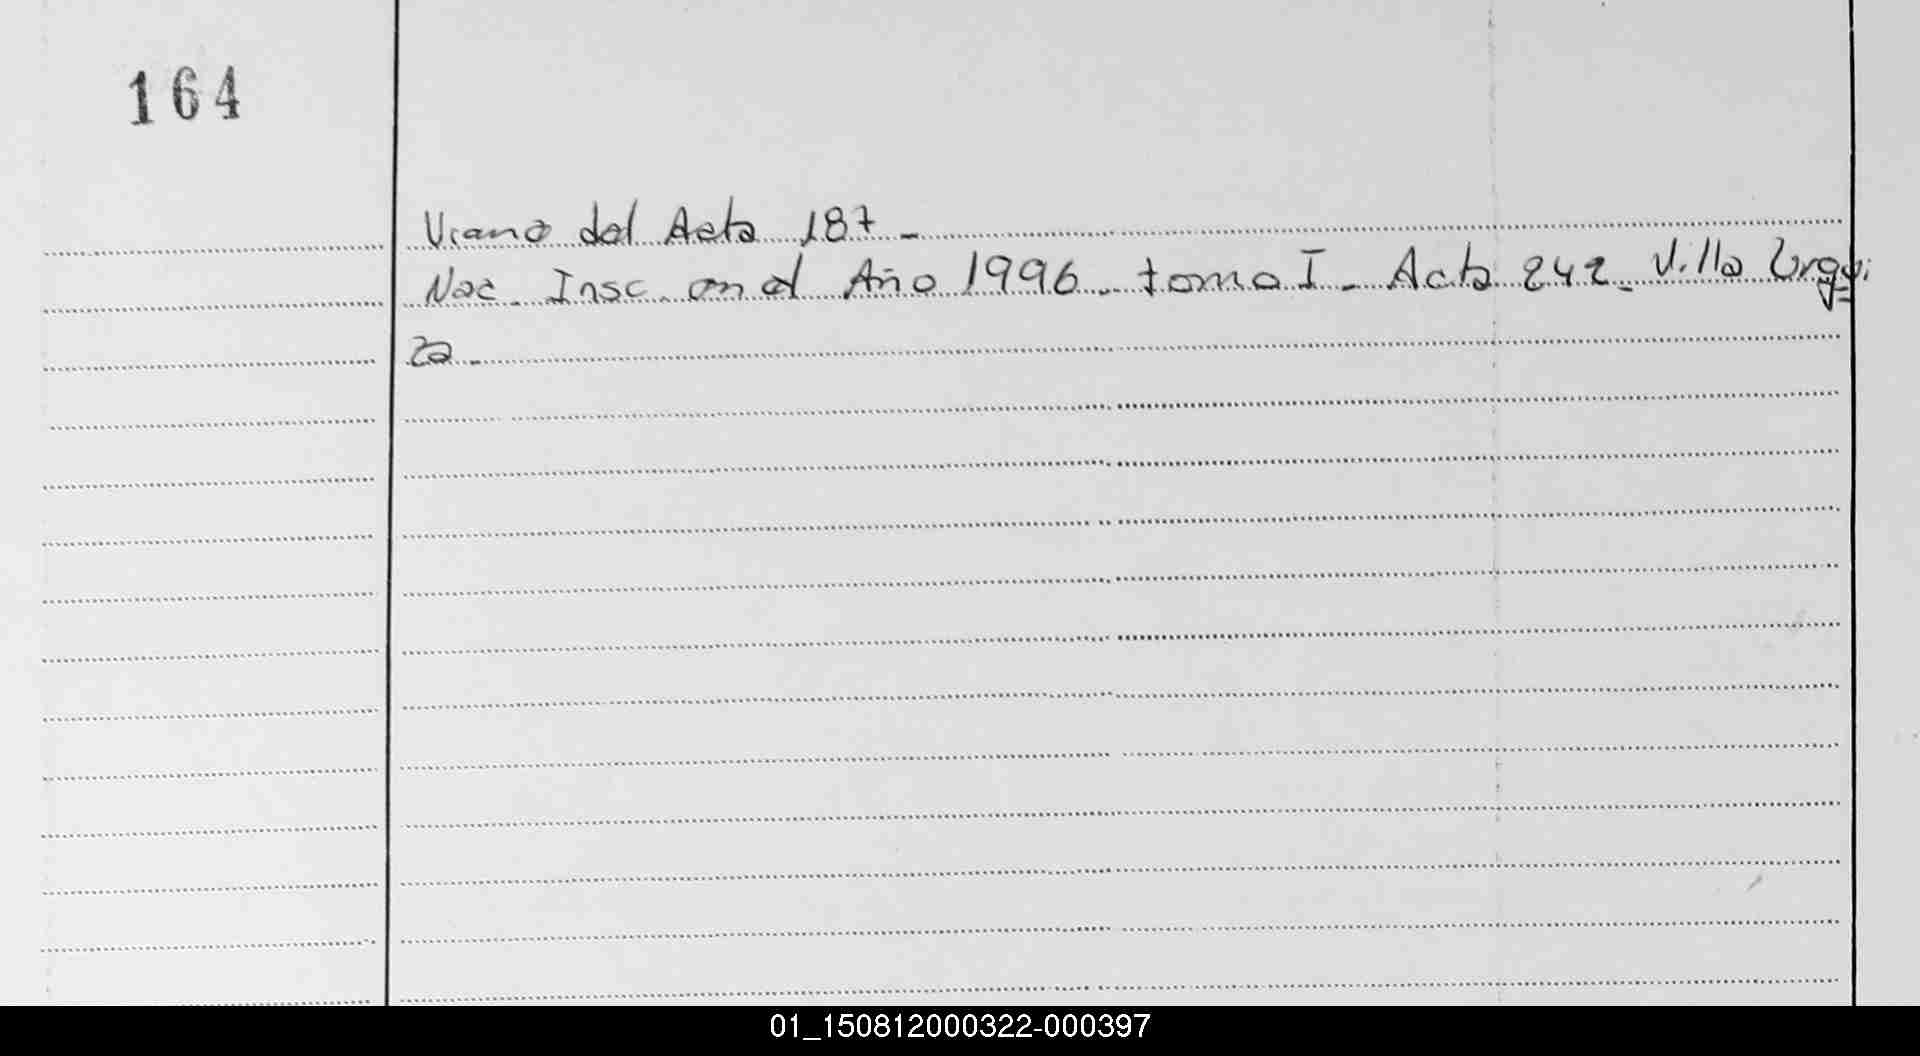 164
Viene del Acta 187 -
Nac. Insc. en el Año 1996 - tomo I - Acta 242 - Villa Urqui
za -
01_150812000322-000397